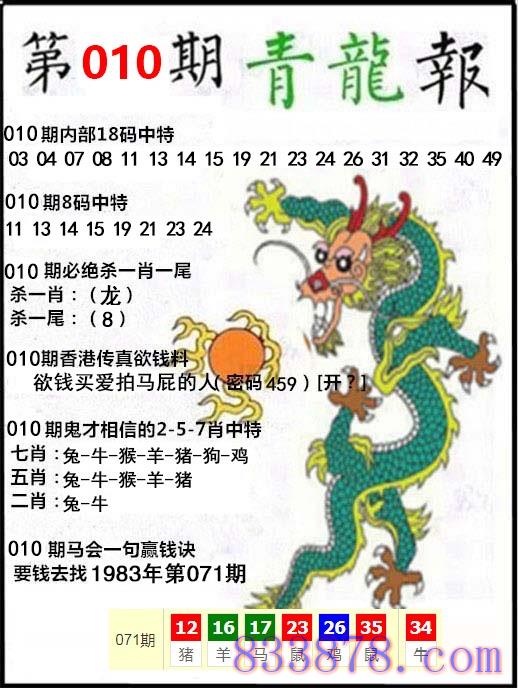 第010期 青龍報
010期内部18码中特
03 04 07 08 11 13 14 15 19 21 23 24 26 31 32 35 40 49
010期8码中特
11 13 14 15 19 21 23 24
010期必绝杀一肖一尾
杀一肖：（龙）
杀一尾：（8）
010期香港传真欲钱料
欲钱买爱拍马屁的人（密码459）[开？]
010期鬼才相信的2-5-7肖中特
七肖：兔-牛-猴-羊-猪-狗-鸡
五肖：兔-牛-猴-羊-猪
二肖：兔-牛
010期马会一句赢钱诀
要钱去找1983年第071期
071期 12 16 17 23 26 35 34
猪 羊 马 鼠 鸡 鼠 牛
833878.com